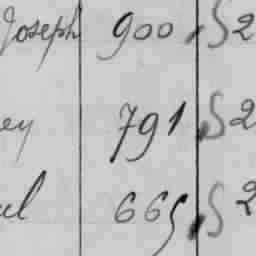 Joseph 900 S2
ey 791 S2
el 665 S2